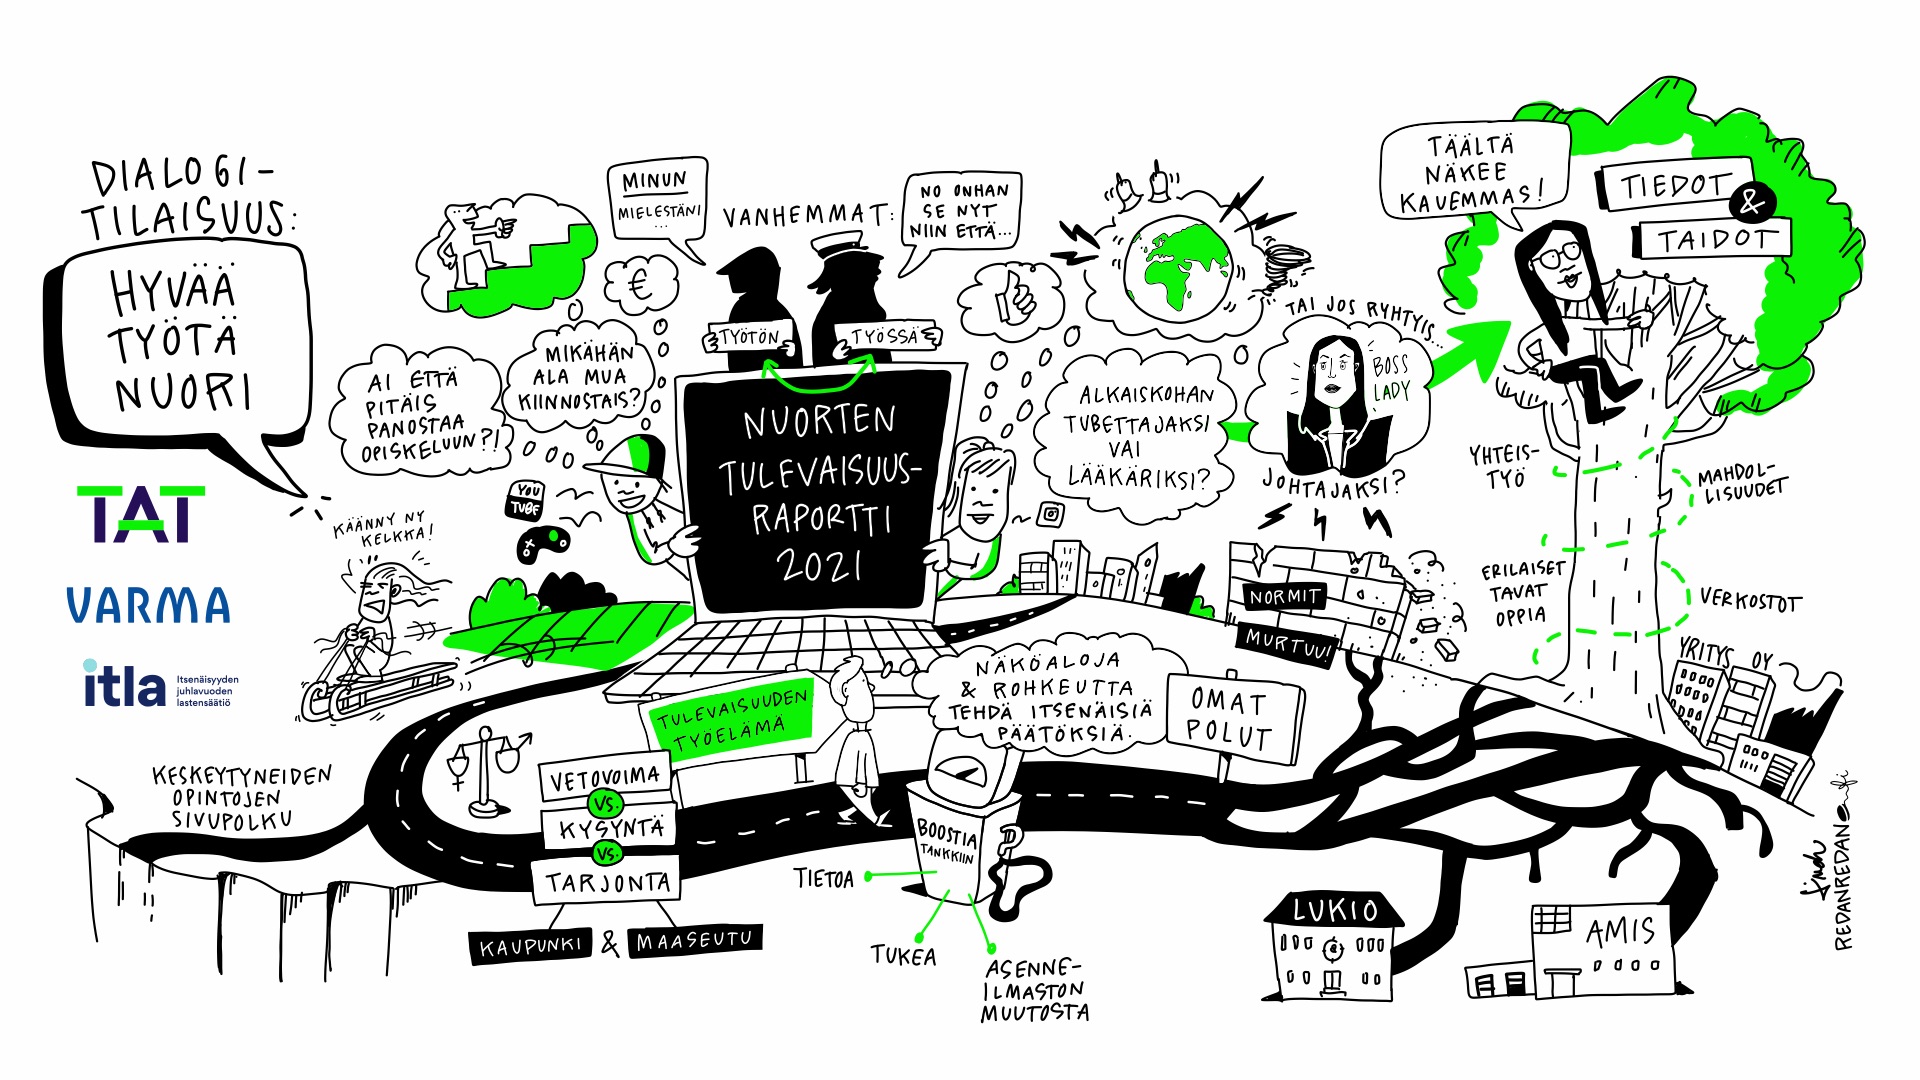 DIALOGI-
TILAISUUS:
HYVÄÄ
TYÖTÄ
NUORI
TAT
VARMA
itla
Itsenäisyyden
juhlavuoden
lastensäätiö
KÄÄNNY NY
KELKKA!
AI ETTÄ
PITÄIS
PANOSTAA
OPISKELUUN?!
€
MIKÄHÄN
ALA MUA
KIINNOSTAIS?
YOU
TUBE
MINUN
MIELESTÄNI
...
VANHEMMAT:
NO ONHAN
SE NYT
NIIN ETTÄ...
TYÖTÖN
TYÖSSÄ
NUORTEN
TULEVAISUUS-
RAPORTTI
2021
ALKAISKOHAN
TUBETTAJAKSI
VAI
LÄÄKÄRIKSI?
TAI JOS RYHTYIS...
BOSS
LADY
JOHTAJAKSI?
NORMIT
MURTUU!
TÄÄLTÄ
NÄKEE
KAUEMMAS!
TIEDOT
&
TAIDOT
YHTEIS-
TYÖ
MAHDOL-
LISUUDET
ERILAISET
TAVAT
OPPIA
VERKOSTOT
YRITYS OY
KESKEYTYNEIDEN
OPINTOJEN
SIVUPOLKU
TULEVAISUUDEN
TYÖELÄMÄ
VETOVOIMA
VS.
KYSYNTÄ
VS.
TARJONTA
KAUPUNKI & MAASEUTU
NÄKÖALOJA
& ROHKEUTTA
TEHDÄ ITSENÄISIÄ
PÄÄTÖKSIÄ.
OMAT
POLUT
BOOSTIA
TANKKIIN
TIETOA
TUKEA
ASENNE-
ILMASTON
MUUTOSTA
LUKIO
AMIS
REDANREDAN